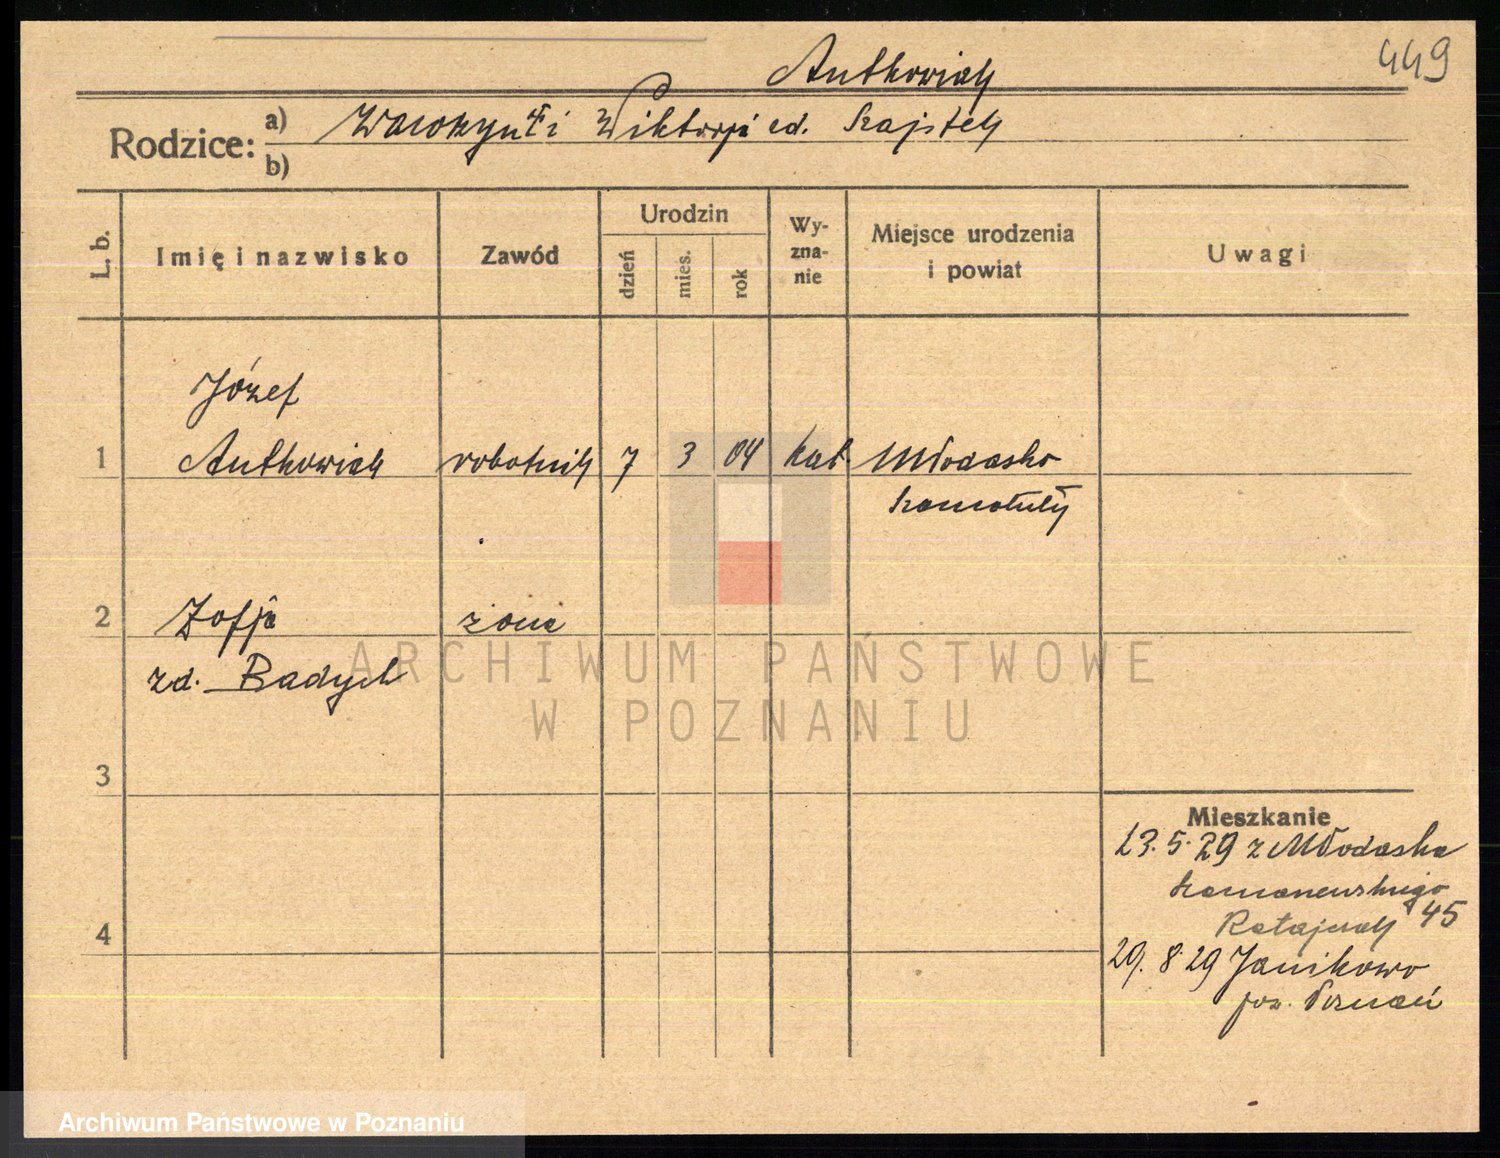 449
Antkowiak
Rodzice: a) Wawrzyn i Wiktorja zd. Szajstek
b)
L. b.
Imię i nazwisko
Zawód
Urodzin
dzień
mies.
rok
Wy-
zna-
nie
Miejsce urodzenia
i powiat
Uwagi
Józef
1 Antkowiak robotnik 7 3 04 kat. Młodasko
Szamotuły
2 Zofja żona
zd. Badych
3
Mieszkanie
23.5.29 z Młodaska
Szamarzewskiego
4 Ratajczak 45
29.8.29 Janikowo
pow. Poznań
ARCHIWUM PAŃSTWOWE
W POZNANIU
Archiwum Państwowe w Poznaniu